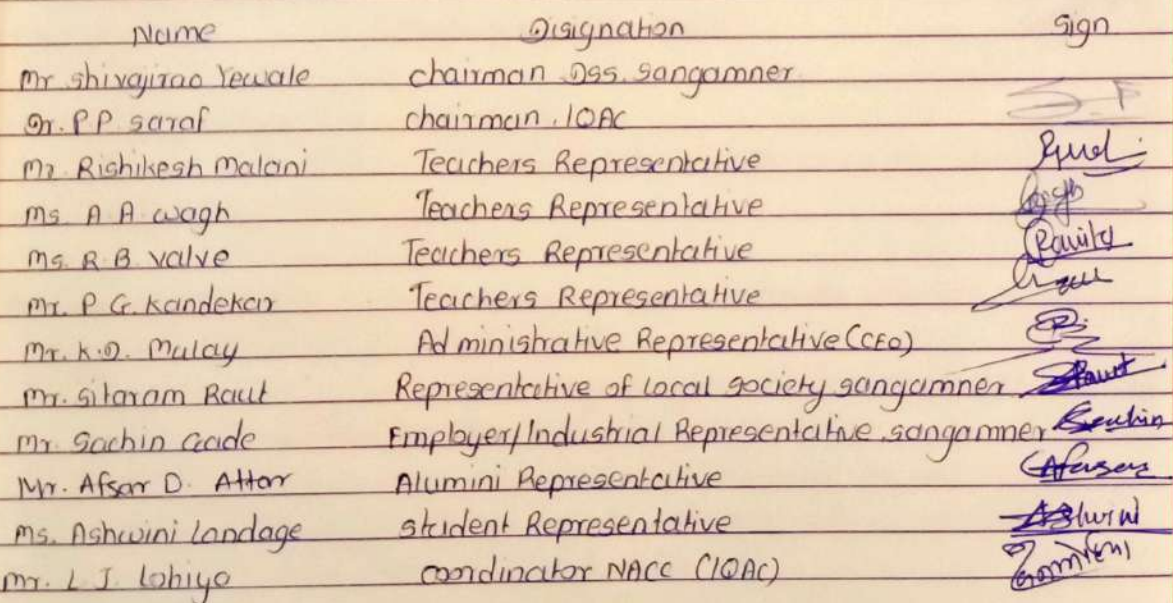 Name Disignation Sign
Mr shivajirao Yewale chairman DSS. Sangamner
Dr. P P saraf chairman. IQAC
Mr. Rishikesh Malani Teachers Representative
Ms. A A wagh Teachers Representative
Ms. R. B valve Teachers Representative Ravita
Mr. P G. Kandekar Teachers Representative
Mr. K.D. Mulay Administrative Representative (CEO)
Mr. sitaram Raut Representative of local society sangamner Raut
Mr. Sachin Gade Employer/Industrial Representative sangamner Sachin
Mr. Afsar D. Attar Alumini Representative
Ms. Ashwini Landage student Representative Ashwini
Mr. L J. Lohiya coordinator NACC (IQAC)